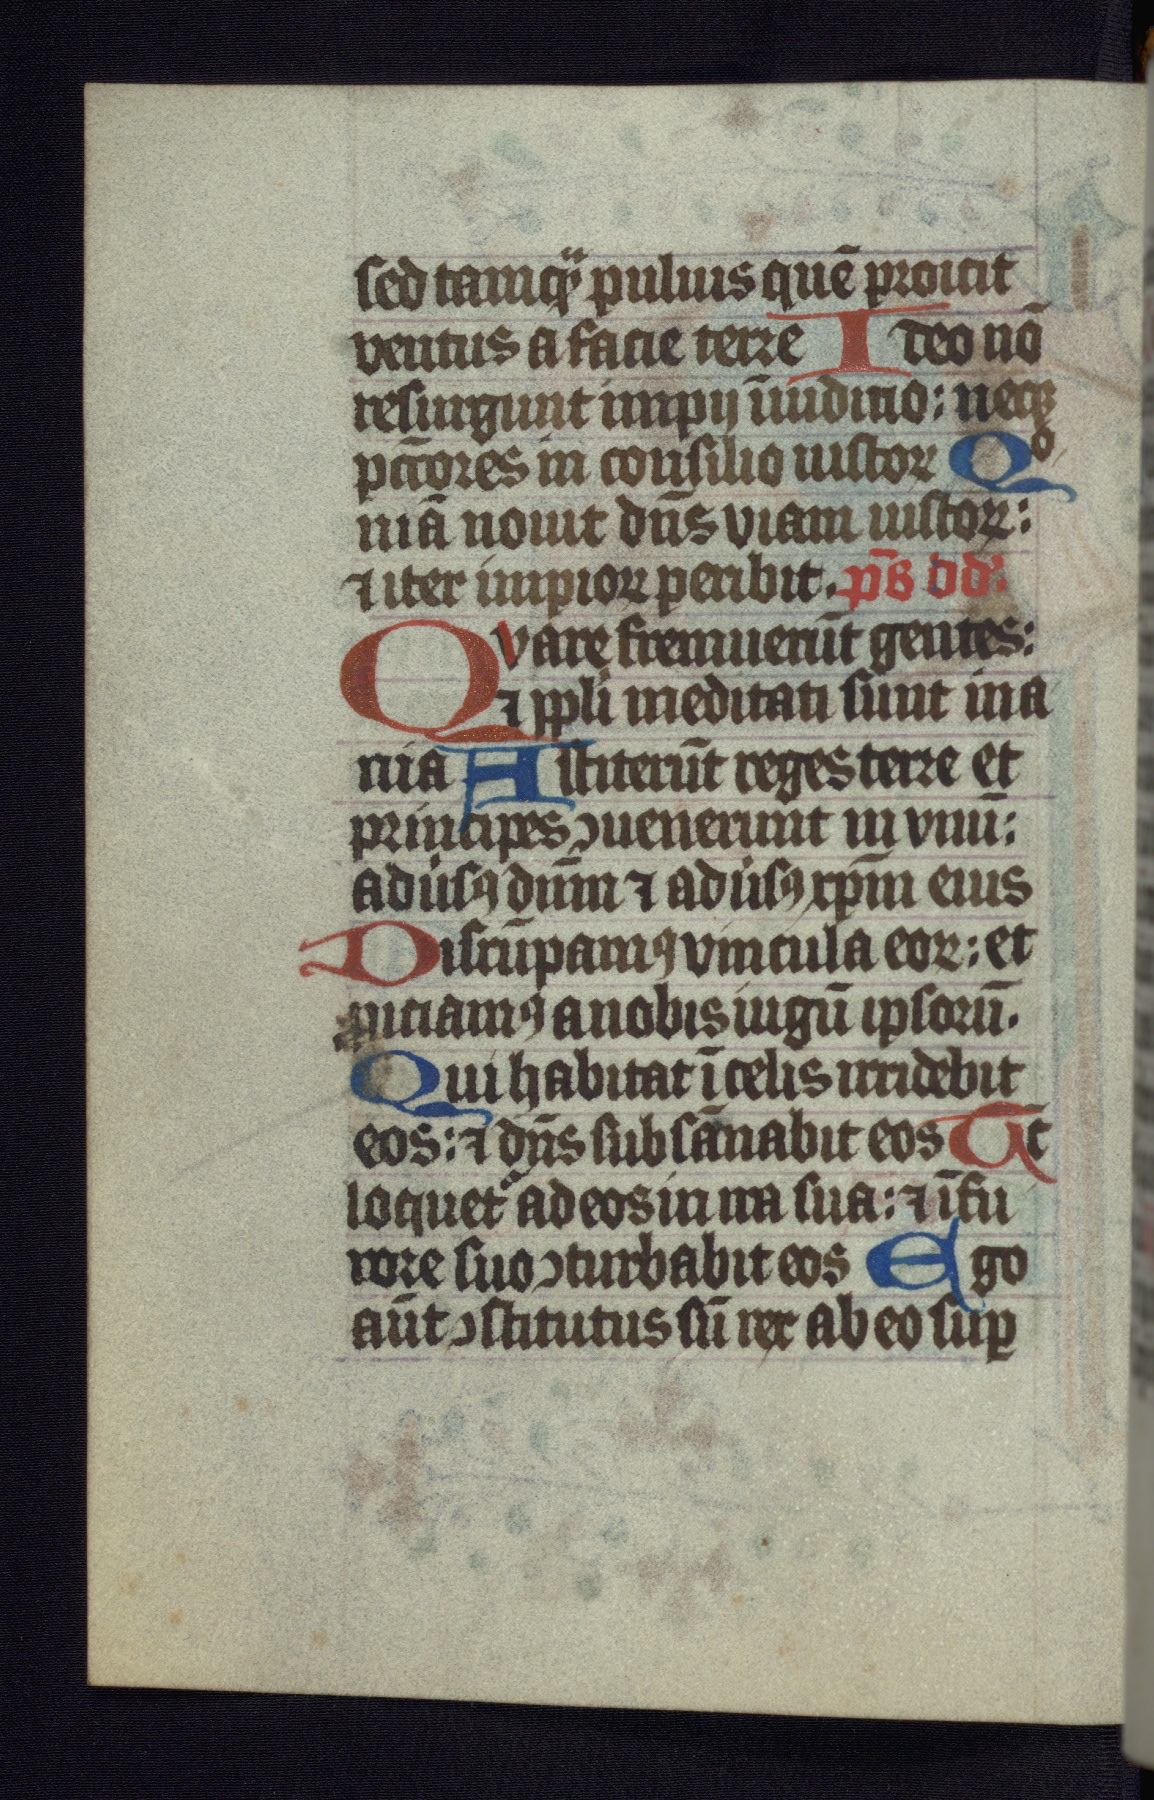 sed tamqᷓ puluis quē proicit
ventus a facie terre Ideo nō
resurgunt impij ī iudicio: neqꝫ
pctōres in consilio iustoꝝ Qͦ
niā nouit dn̄s viam iustoꝝ:
⁊ iter impioꝝ peribit. ps̄ dd’.
Qvare fremuerūt gentes:
⁊ ppli meditati sunt ina
nia Astiterūt reges terre et
principes ꝯuenerunt in vnū:
adūsꝰ dn̄m ⁊ adūsꝰ xp̄m eius
Discūpamꝰ vincula eoꝝ: et
piciamꝰ a nobis iugū ipsorū.
Qui habitat ī celis irridebit
eos: ⁊ dn̄s subsānabit eos Tc̄
loquet᷑ ad eos in ira sua: ⁊ ī fu
rore suo ꝯturbabit eos Ego
aūt ꝯstitutus sū rex ab eo suꝑ